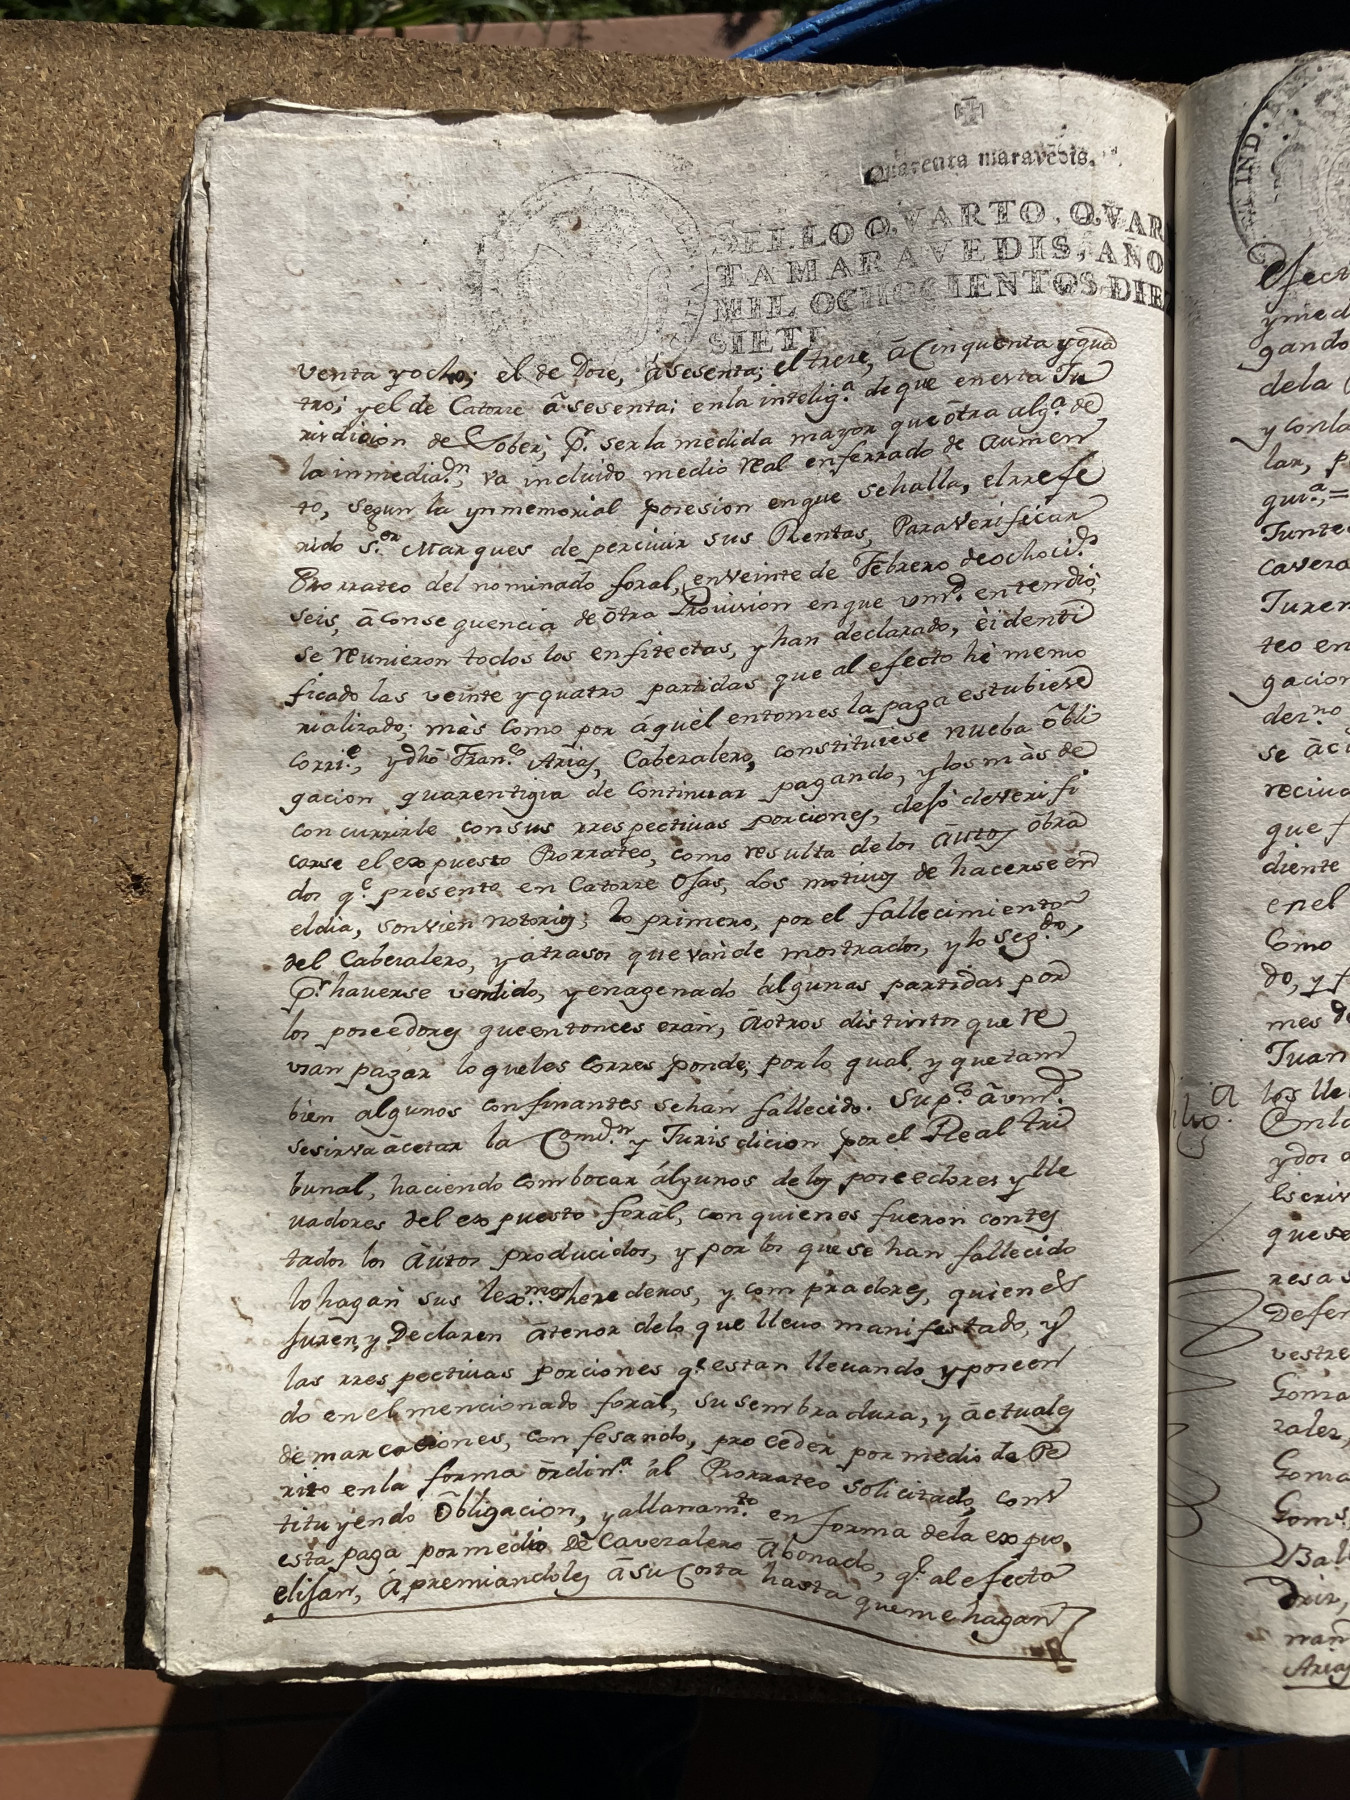 Quarenta maravedis.
SELLO QVARTO, QVAR
TA MARAVEDIS, AÑO
MIL OCHOCIENTOS DIEZ
SIETE
venta y ocho; el de Doze, á sesenta; el treze, á Cinquenta y qua
tro; y el de Catorze á sesenta; en la intelig.ª de que en esta Ju
risdicion de Sober, p.r ser la medida mayor que ótra alg.ª de
la inmediaz.n, va incluido medio real en ferrado de aumen
to, segun la ynmemorial posesion en que se halla, el rrefe
rido s.or Marques de percivir sus Rentas, Para verificar
Prorrateo del nominado foral, en veinte de Febrero de ochoci.s
seis, á consequencia de ótra Provision en que vmd. entendió,
se reunieron todos los enfitectas, y han declarado, é identi
ficado las veinte y quatro partidas que al efecto hé memo
rializado; más como por áquél entonces la paga estubiese
corri.e, y dho Fran.co Arias, Cabezalero, constituiese nueba óbli
gacion guarentigia de Continuar pagando, y los más de
concurrirle con sus rrespectivas porciones, dejó de verifi
carse el expuesto Prorrateo, como resulta de los áutos óbra
dos q.e presento en Catorze Ojas, Los motivos de hacerse en
el dia, son vien notorios; lo primero, por el fallecimiento
del Cabezalero, y atrasos que van de mostrados, y lo seg.do,
p.r haverse vendido, y enagenado álgunas partidas por
los poseedores que entonces erán, á otros distintos que re
usan pagár lo que les corresponde; por lo qual, y que tam
bien algunos confinantes se hán fallecido. Sup.co á vmd.
se sirva ácetar la Comis.n y Jurisdicion por el Real tri
bunal, haciendo combocar álgunos de los poseedores y lle
vadores del expuesto forál, con quienes fuerón contes
tados los áutos producidos, y por los que se han fallecido
lo hagán sus lexmos herederos, y compradores, quienes
Juren, y Declaren átenor de lo que llevo manifestado, y
las rrespectivas porciones q.e estan llevando y poseen
do en el mencionado forál, su sembradura, y áctuales
demarcaciones, confesando, proceder por medio de Pe
rito en la forma órdin.ª ál Prorrateo solicitado, cons
tituyendo óbligacion, y allanam.to en forma de la expu
esta paga por medio de Cavezalero ábonado, q.e al efecto
elijan, ápremiandoles á su Costa hasta que me hagan